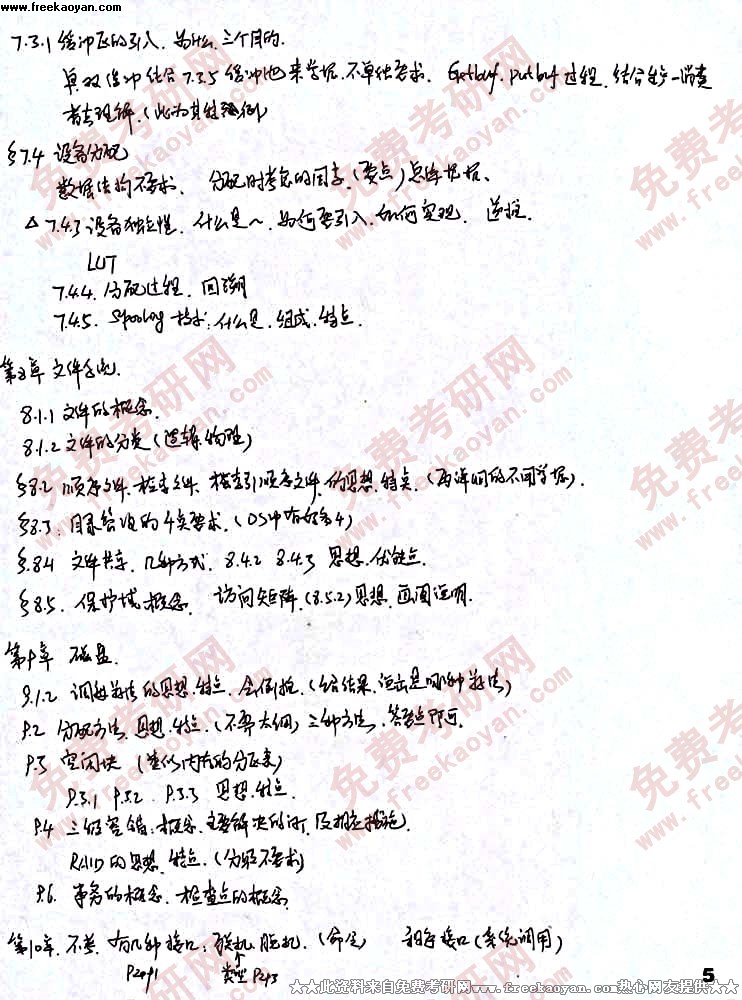 www.freekaoyan.com
7.3.1 缓冲区的引入. 为什么. 三个目的.
单双缓冲结合 7.3.5 缓冲池来掌握. 不单独要求. Getbuf. putbuf 过程. 结合
理解. (此为其特例)
§7.4 设备分配
数据结构不要求. 分配时考虑的因素. (要点) 总体把握.
△ 7.4.3 设备独立性. 什么是~. 为何要引入. 如何实现.
LUT
7.4.4. 分配过程.
7.4.5. Spooling 技术: 什么是. 组成. 特点.
第8章 文件系统.
8.1.1 文件的概念.
8.1.2 文件的分类 (逻辑. 物理)
§8.2 顺序文件. 索引文件. 索引顺序文件. 的思想. 特点. (两者间的不同掌握).
§8.3. 目录管理的4类要求. (OS中有好多4)
§.8.4 文件共享. 几种方式. 8.4.2 8.4.3 思想. 优缺点.
§8.5. 保护域概念. 访问矩阵. (8.5.2) 思想. 画图说明.
第9章 磁盘.
9.1.2 调度算法的思想. 特点. 会倒推. (给结果. 是哪种算法)
9.2 分配方法. 思想. 特点. (不要太细) 三种方法. 答要点即可.
9.3 空闲块 (类似内存的分区表)
9.3.1 9.3.2 9.3.3 思想. 特点.
9.4 三级容错: 概念. 主要解决的 及相应措施.
RAID的思想. 特点. (分级不要求)
9.6. 事务的概念. 检查点的概念.
第10章. 不考. 有几种接口: 联机. 脱机. (命令) 程序接口 (系统调用)
P291 类型 P293
5
★★此资料来自免费考研网www.freekaoyan.com热心网友提供★★
免费考研网
www.freekaoyan.com